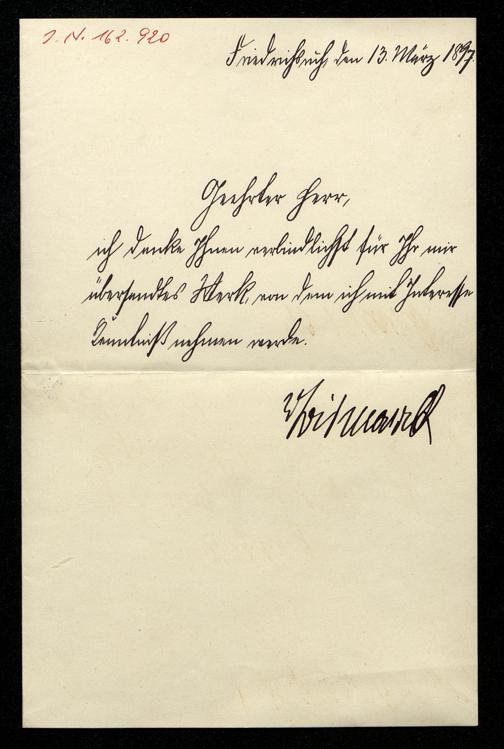 J. N. 162.920
Friedrichsruh, den 13. März 1897.
Geehrter Herr,
ich danke Ihnen verbindlichst für Ihr mir
übersandtes Werk, von dem ich mit Interesse
Kenntniß nehmen werde.
vBismarck